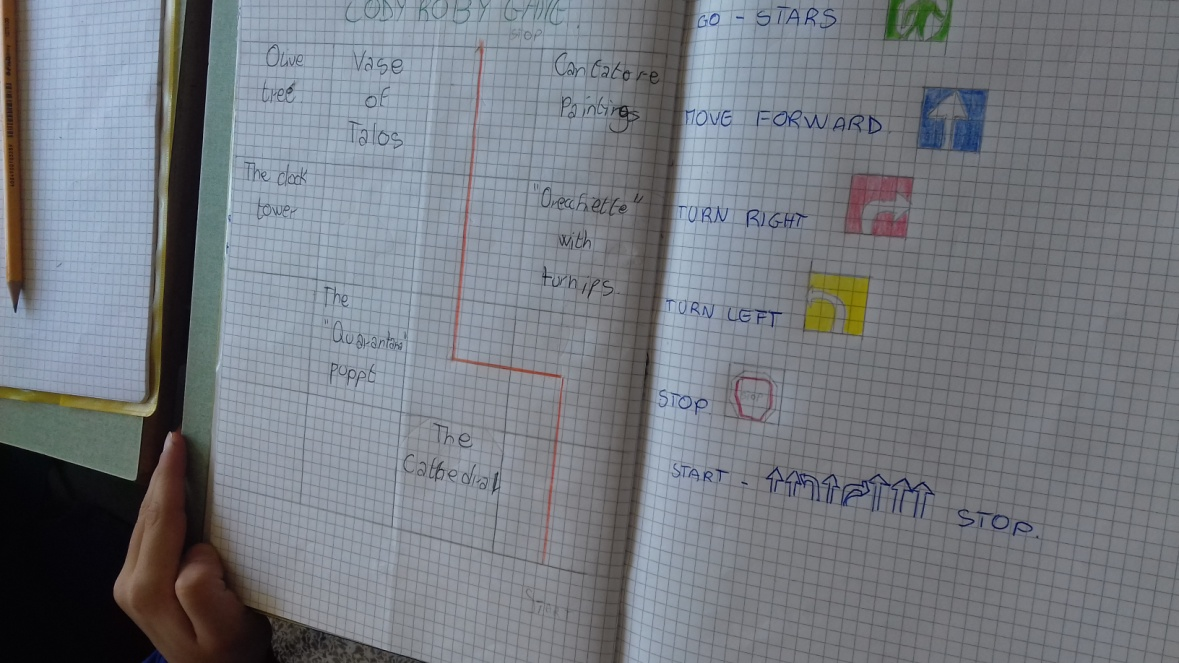 CODY ROBY GAME.
stop
Olive
tree
Vase
of
Talos
Cantatore
Paintings
The clock
tower
"Orecchiette"
with
turnips.
The
"Quarantana"
puppt
The
Cathedral
START
GO - STARS
MOVE FORWARD
TURN RIGHT
TURN LEFT
STOP
STOP
START - STOP.